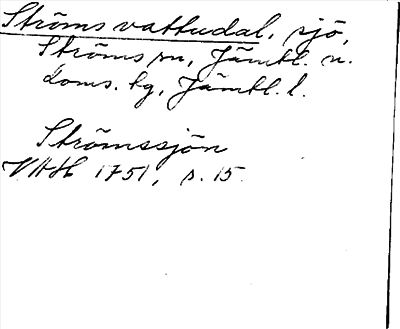 Ströms vattudal, sjö,
Ströms sn, Jämtl. n.
doms. tg, Jämtl. l.
Strömssjön
VAH 1751, s. 15.